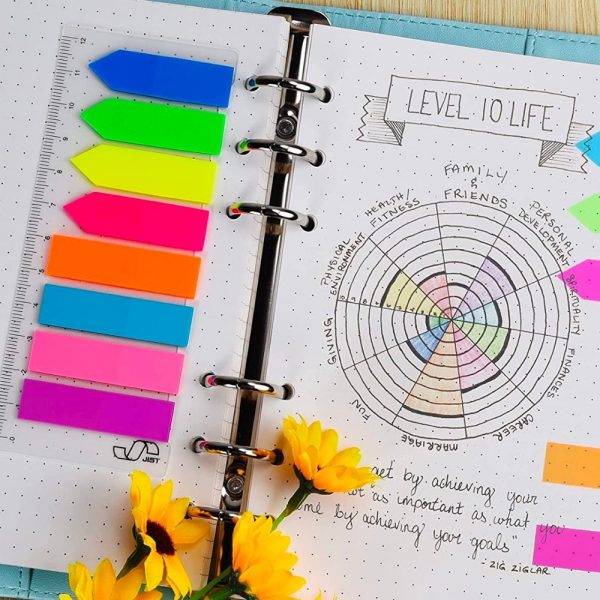 LEVEL 10 LIFE
FAMILY
&
FRIENDS
PERSONAL
DEVELOPMENT
SPIRITUALITY
FINANCES
CAREER
MARRIAGE
FUN
GIVING
PHYSICAL
ENVIRONMENT
HEALTH/
FITNESS
get by achieving your
as important as what you
by achieving your goals"
- ZIG ZIGLAR
JIST